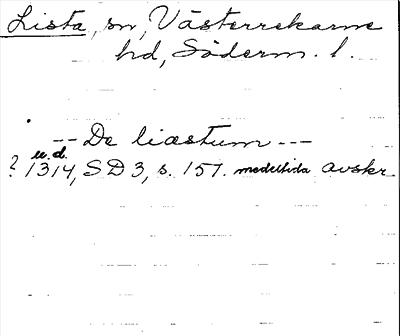 Lista, sn, Västerrekarne
hd, Söderm. l.
-- De liæstum ---
u. d.
? 1314, SD 3, s. 157. medeltida avskr